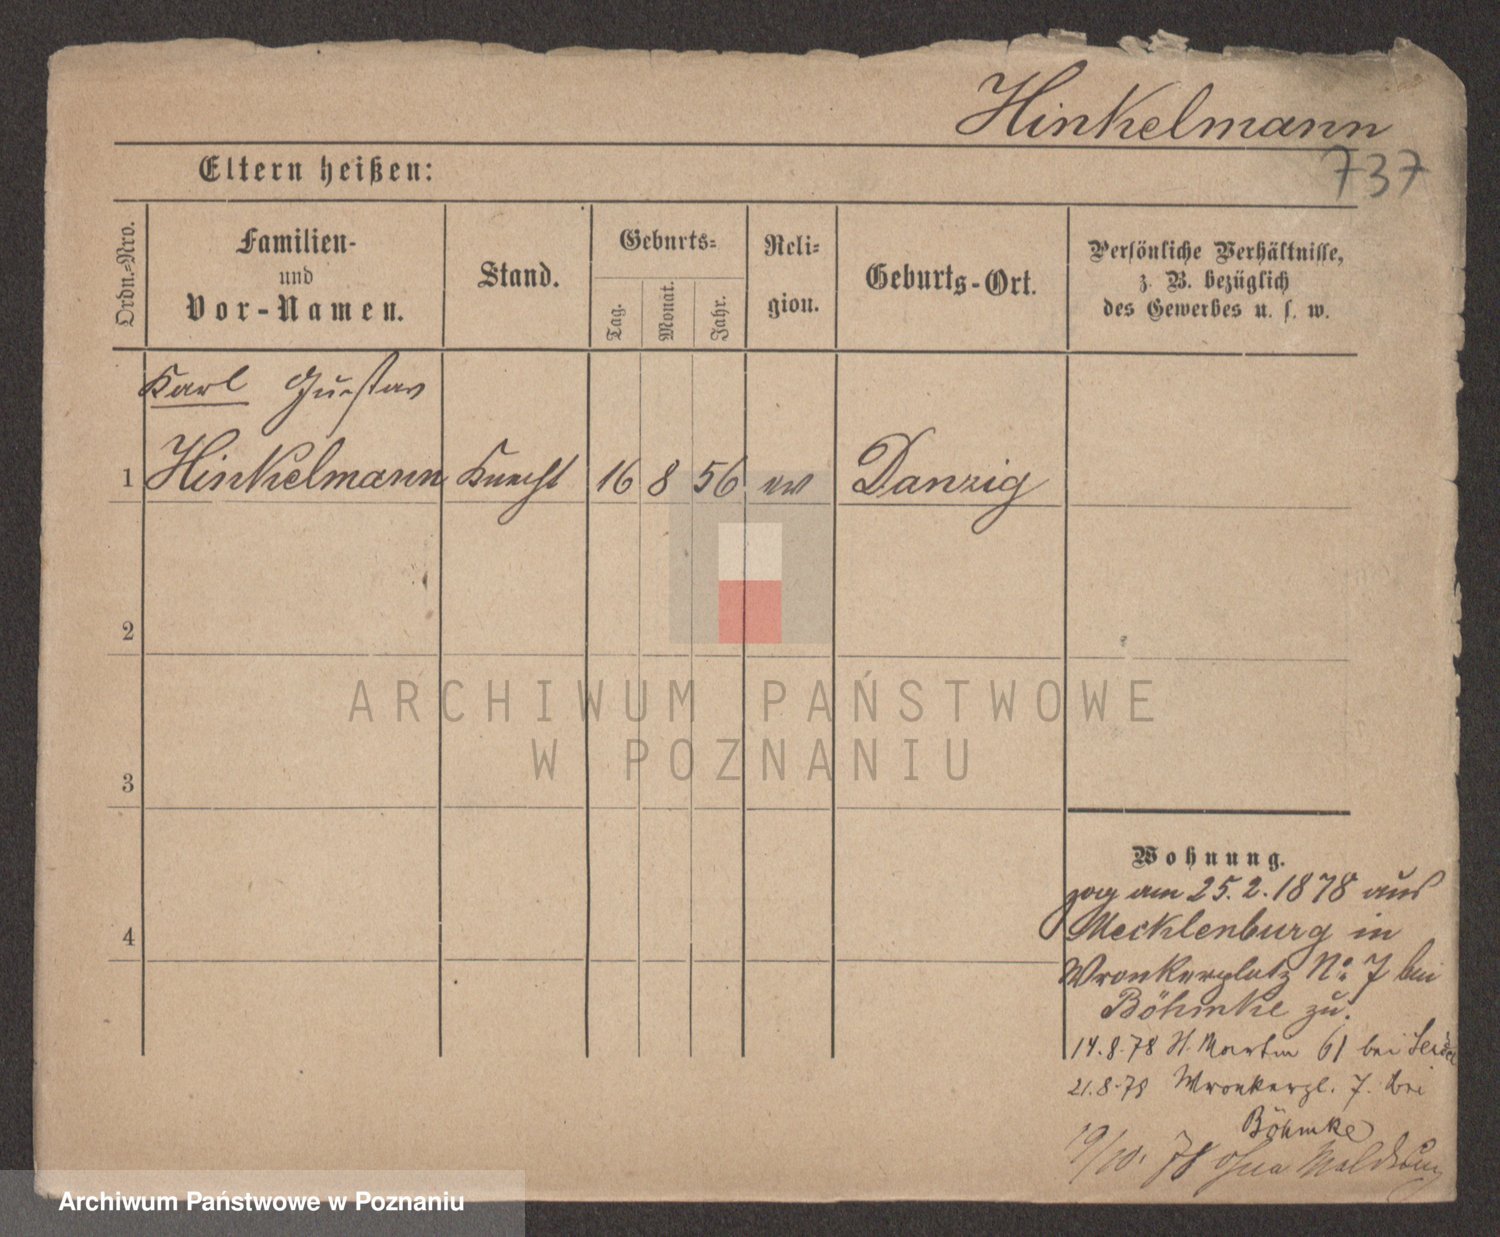 Hinkelmann
737
Eltern heißen:
Ordn.-Nro.
Familien-
und
Vor-Namen.
Stand.
Geburts-
Tag.
Monat.
Jahr.
Reli-
gion.
Geburts-Ort.
Persönliche Verhältnisse,
z. B. bezüglich
des Gewerbes u. s. w.
Karl Gustav
1 Hinkelmann Knecht 16 8 56 ev Danzig
2
3
4
ARCHIWUM PAŃSTWOWE
W POZNANIU
Wohnung.
zog am 25.2.1878 aus
Mecklenburg in
Wronkerplatz No 7 bei
Böhmke zu.
14.8.78 St. Martin 61 bei
21.8.78 Wronkerpl. 7. bei
Böhmke
19/10. 78 ohne Meldung
Archiwum Państwowe w Poznaniu